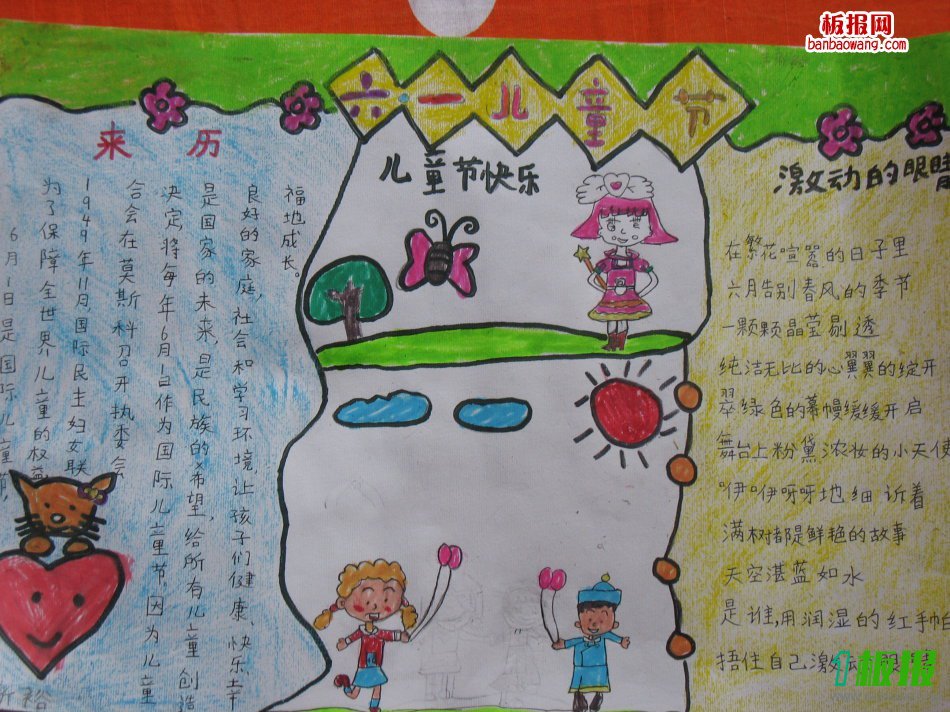 板报网
banbaowang.com
六一儿童节
来历
6月1日是国际儿童节,
为了保障全世界儿童的权益
1949年11月国际民主妇女联
合会在莫斯科召开执委会
决定将每年6月1日作为国际儿童节。因为儿童
是国家的未来,是民族的x希望,给所有儿童创造
良好的家庭,社会和学习环境,让孩子们健康、快乐、幸
福地成长。
儿童节快乐
激动的眼睛
在繁花喧嚣的日子里
六月告别春风的季节
一颗颗晶莹剔透
纯洁无比的心翼翼的绽开
翠绿色的幕幔缓缓开启
舞台上粉黛浓妆的小天使
咿咿呀呀地细诉着
满树都是鲜艳的故事
天空湛蓝如水
是谁,用润湿的红手帕
捂住自己激动
板报